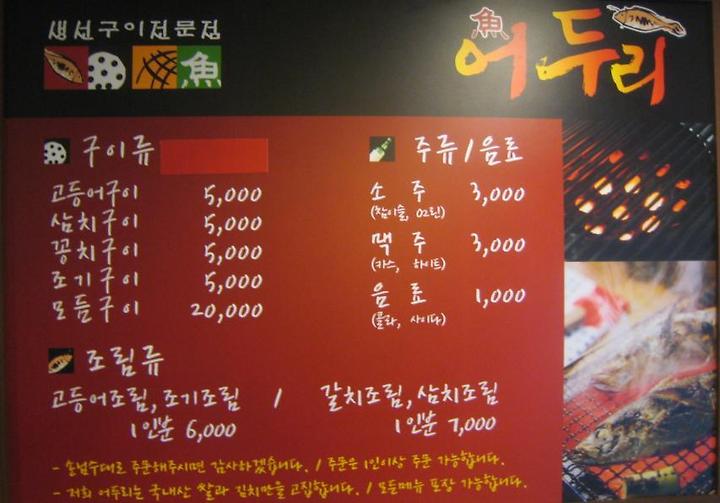 생선구이전문점
魚
魚 어두리
구이류
고등어구이 5,000
삼치구이 5,000
꽁치구이 5,000
조기구이 5,000
모듬구이 20,000
주류/음료
소 주 3,000
(참이슬, O2린)
맥 주 3,000
(카스, 하이트)
음 료 1,000
(콜라, 사이다)
조림류
고등어조림, 조기조림 / 갈치조림, 삼치조림
1인분 6,000 1인분 7,000
- 손님수대로 주문해주시면 감사하겠습니다. / 주문은 1인이상 주문 가능합니다.
- 저희 어두리는 국내산 쌀과 김치만을 고집합니다. / 모든메뉴 포장 가능합니다.